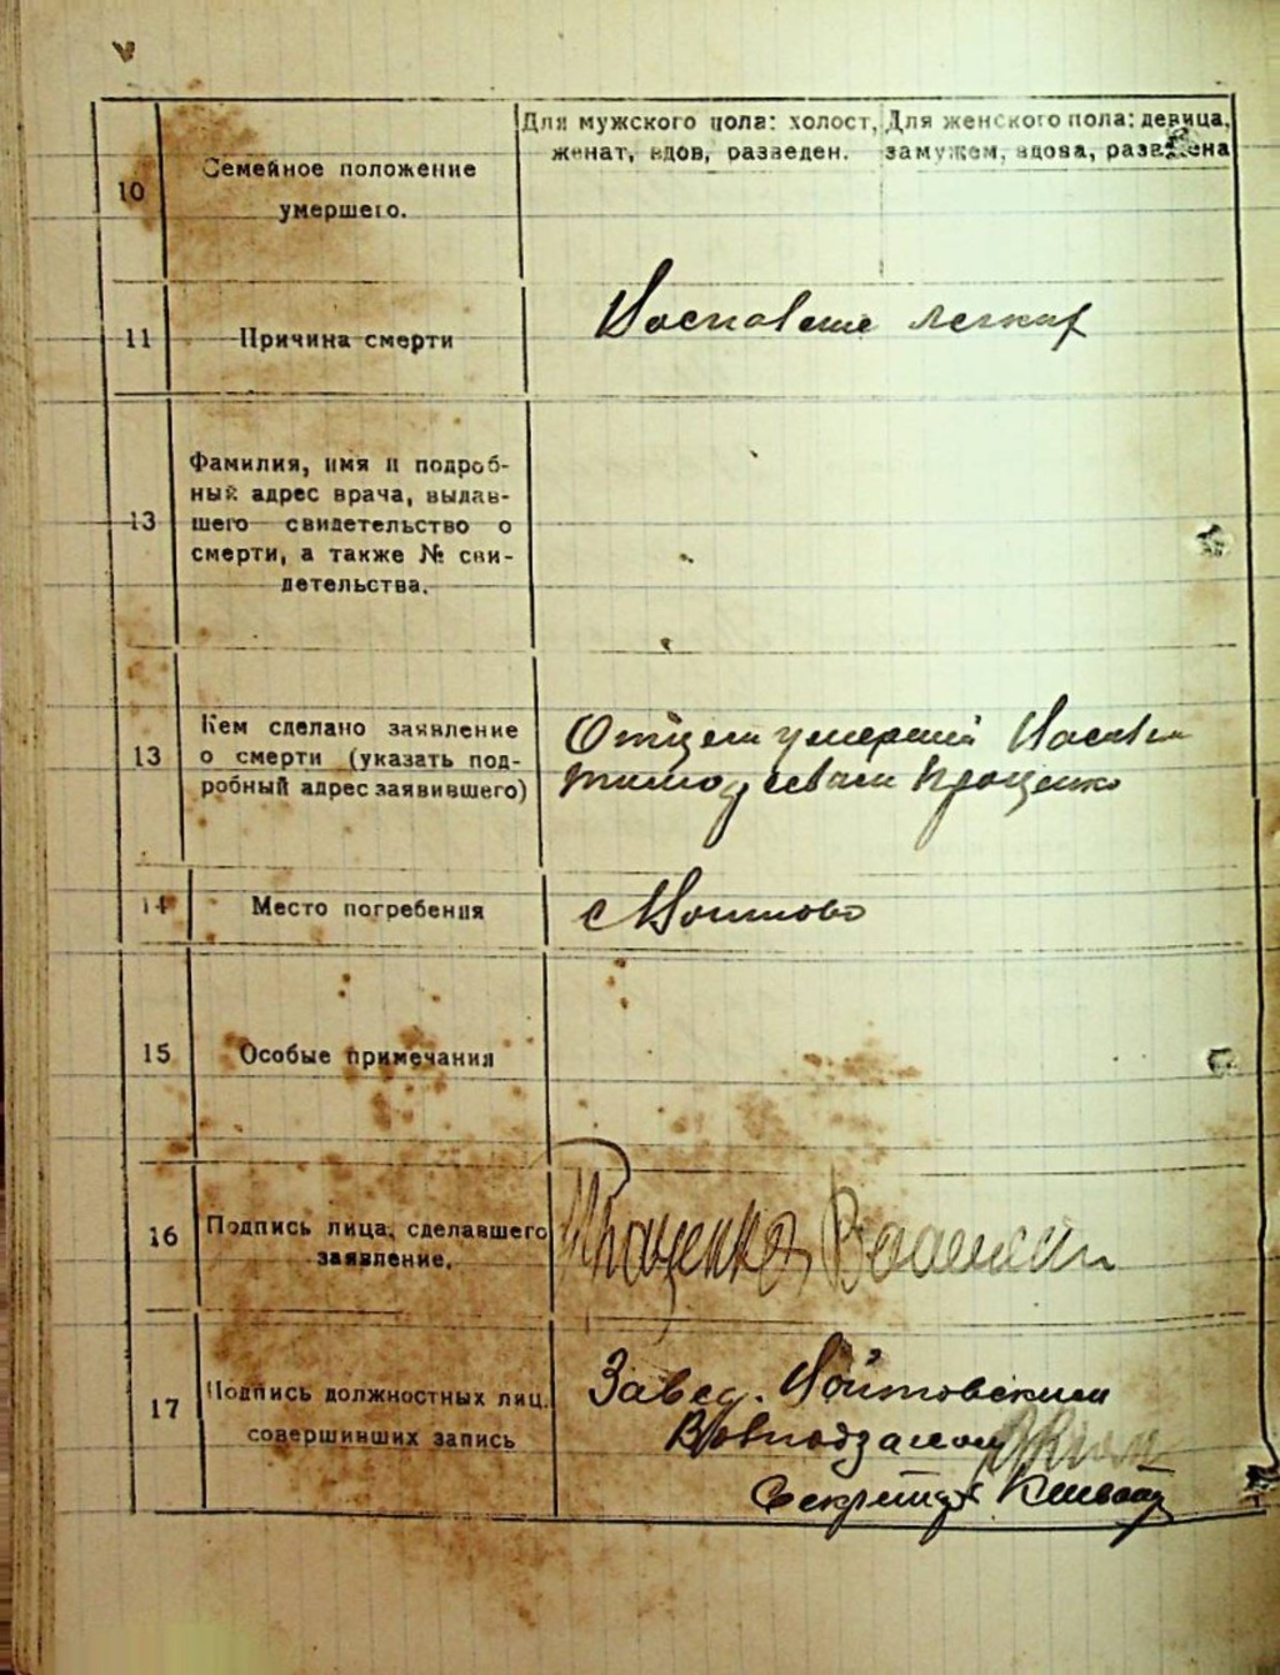 10
Семейное положение
умершего.
Для мужского пола: холост,
женат, вдов, разведен.
Для женского пола: девица,
замужем, вдова, разведена
11
Причина смерти
Воспаление легких
13
Фамилия, имя и подроб-
ный адрес врача, выдав-
шего свидетельство о
смерти, а также № сви-
детельства.
13
Кем сделано заявление
о смерти (указать под-
робный адрес заявившего)
Отцем умершей
Тимофеевым Проценко
14
Место погребения
с Войтово
15
Особые примечания
16
Подпись лица, сделавшего
заявление.
Проценко
17
Подпись должностных лиц,
совершивших запись
Завед. Войтовским
Волподзагом
Секретарь